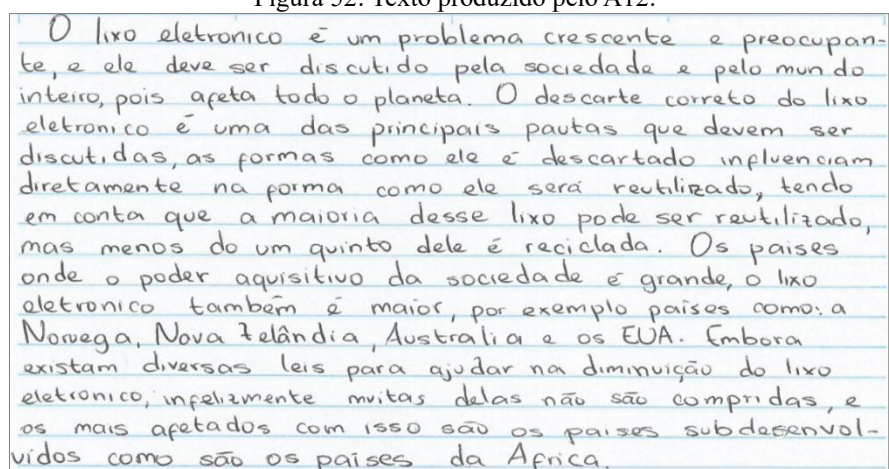 Figura 32: Texto produzido pelo A12.
O lixo eletronico é um problema crescente e preocupan-
te, e ele deve ser discutido pela sociedade e pelo mundo
inteiro, pois afeta todo o planeta. O descarte correto do lixo
eletronico é uma das principais pautas que devem ser
discutidas, as formas como ele é descartado influenciam
diretamente na forma como ele será reutilizado, tendo
em conta que a maioria desse lixo pode ser reutilizado,
mas menos do um quinto dele é reciclada. Os paises
onde o poder aquisitivo da sociedade é grande, o lixo
eletronico também é maior, por exemplo países como: a
Noruega, Nova Zelândia, Australia e os EUA. Embora
existam diversas leis para ajudar na diminuição do lixo
eletronico, infelizmente muitas delas não são compridas, e
os mais afetados com isso são os paises subdesenvol-
vidos como são os países da Africa.